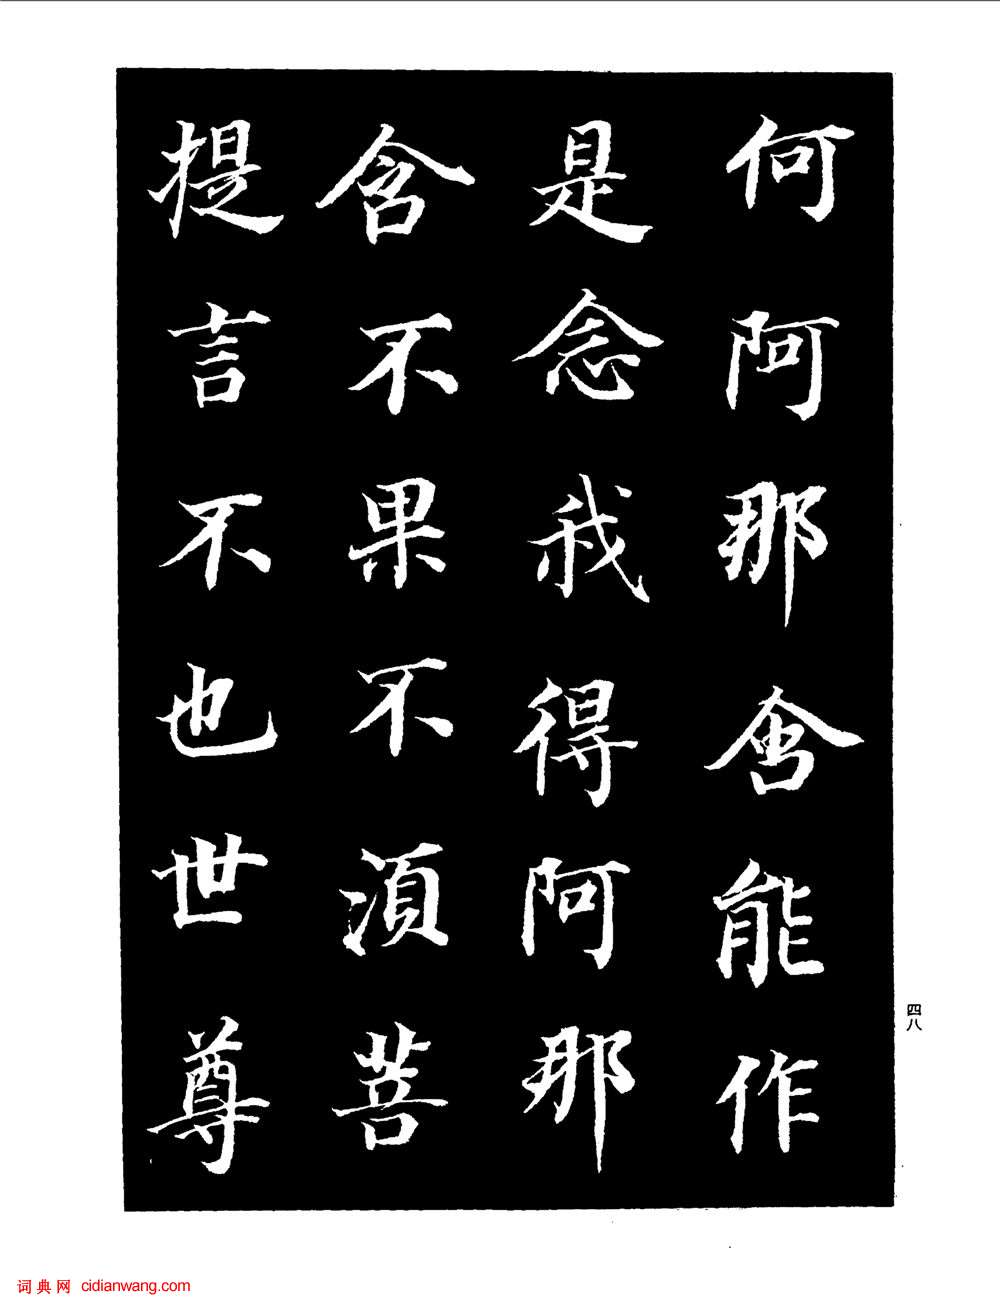 何阿那含能作
是念我得阿那
含不果不須菩
提言不也世尊
四八
词典网 cidianwang.com